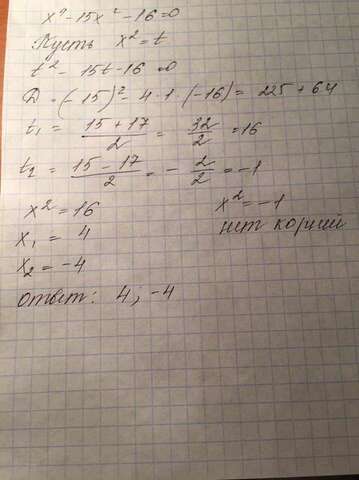 x⁴-15x²-16=0
Пусть x²=t
t²-15t-16=0
D=(-15)²-4·1·(-16)=225+64
t₁ = (15+17)/2 = 32/2 = 16
t₂ = (15-17)/2 = -2/2 = -1
x²=16 x²=-1
x₁ = 4 нет корний
x₂ = -4
ответ: 4; -4